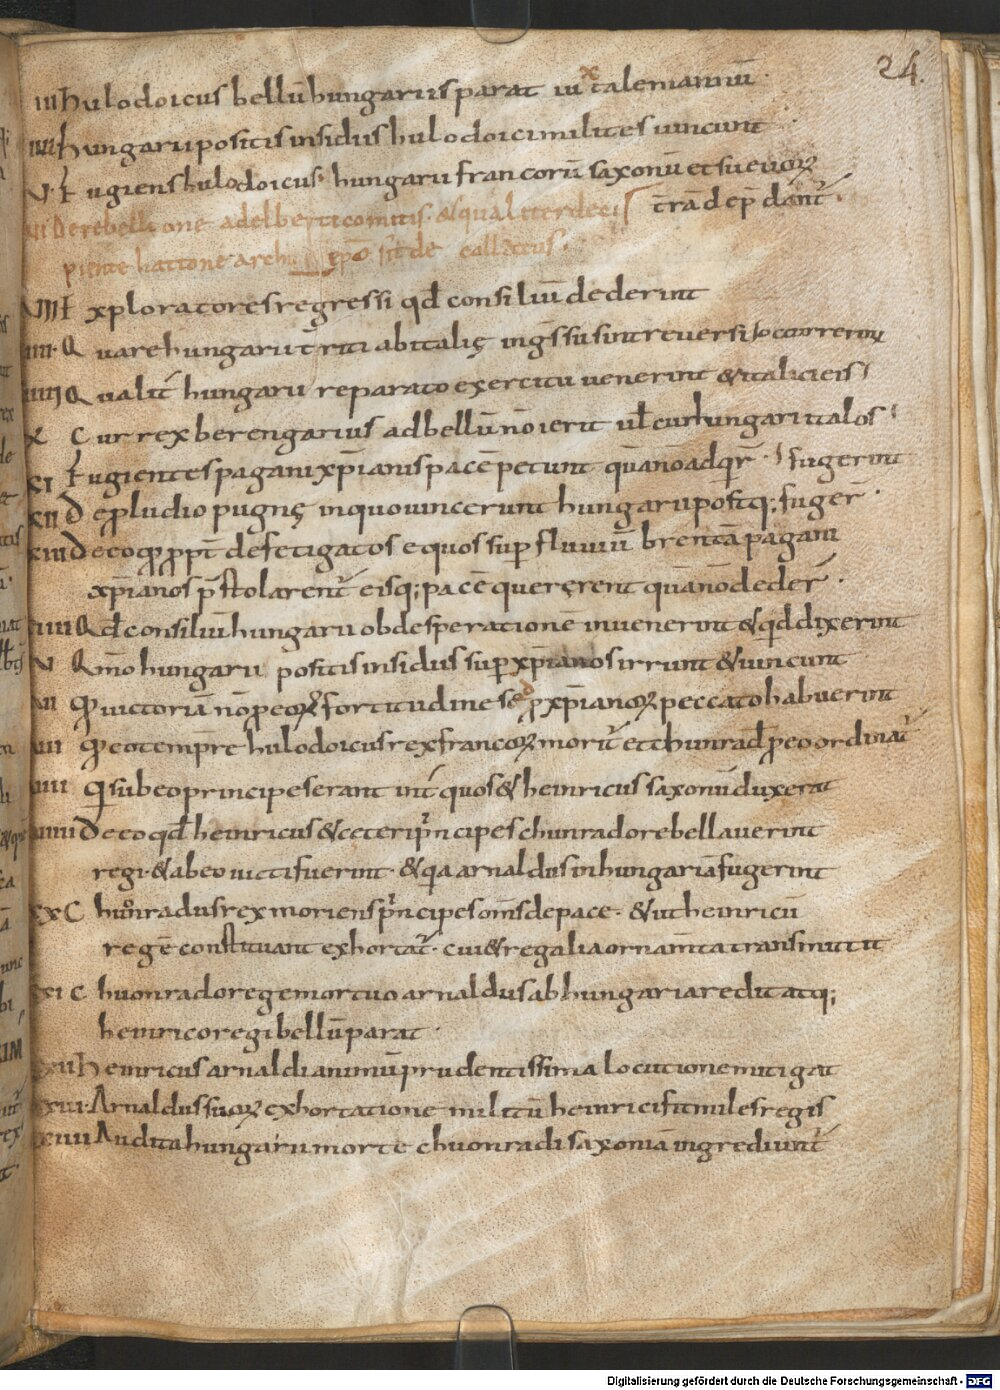 24.
III hulodoicus bellū hungariis parat iuxta lemannū.
IIII hungarii positis insidiis hulodoici milites uincunt
V. Fugiens hulodoicus. hungarii francorū saxonū et sueuoꝝ
VI De rebellione adelberti comitis. & qualiter deci
trād ep̄ dant᷑.
piente hattone archi ep̄o sit de collatus.
VIII Exploratores regressi qđ consiliū dederint
VIIII. Quare hungarii territi ab italię ingressu sint reuersi
VIIII Qualit̄ hungarii reparato exercitu uenerint & italici eis
occurrerint
X Cur rex berengarius ad bellū nō ierit ul̄ cur hungari italos
fugerint
XI Fugientes pagani xp̄ianis pacē petunt quā non adq̄r̄.
XII De pludio pugnę in quo uincerunt hungarii postq; fuger̄.
XIII De eo qđ ppt̄ defetigatos equos sup fluuiū brentā pagani
xp̄ianos p̄stolarent᷑ eisq; pacē queręrent quā nō deder̄.
XIIII Qđ consiliū hungarii ob desperationē inuenerint & qđ dixerint
XV Qm̄o hungarii positis insidiis sup xp̄ianos irrunt & uincunt
XVI Qđ uictoriā nō p eoꝝ fortitudine sed p xp̄ianoꝝ peccato habuerint
XVII Qđ eo tempr̄e hulodoicus rex francoꝝ morit᷑ et chunrad᷒ p eo ordinat᷑
XVIII Qi sub eo principes erant int̄ quos & heinricus saxonū dux erat
XVIIII De eo qđ heinricus & ceteri p̄ncipes chunrado rebellauerint
regi. & ab eo uicti fuerint. & qa arnaldus in hungariā fugerint
XX Chuonradus rex moriens p̄ncipes om̄s de pace. & ut heinricū
regē constituant exhortat᷑. cui & regalia ornam̄ta transmittit
XXI Chuonrado rege mortuo arnaldus ab hungaria redit atq;
heinrico regi bellū parat.
XXII Heinricus arnaldi animū prudentissima locutione mitigat
XXIII. Arnaldus suoꝝ exhortatione militū heinrici fit miles regis
XXIIII Audita hungarii morte chuonradi saxoniā ingrediunt᷑
Digitalisierung gefördert durch die Deutsche Forschungsgemeinschaft - DFG